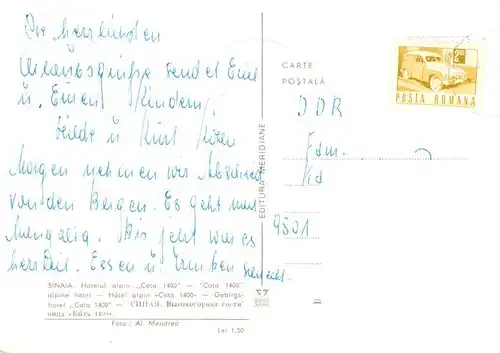 Die herzlichsten
Urlaubsgrüße sendet Euch
u. Euren Kindern
Hilde u Kurt
Morgen nehmen wir Abschied
von den Bergen. Es geht nach
Mangalia. Bis jetzt war es
herrlich. Essen u. Trinken
CARTE
POȘTALĂ
POSTA ROMANA
DDR
Fam.
9501
EDITURA MERIDIANE
SINAIA. Hotelul alpin „Cota 1400” — "Cota 1400"
alpine hotel — Hôtel alpin «Cota 1400» — Gebirgs-
hotel „Cota 1400” — СИНАЯ. Высокогорная гости-
ница «Кота 1400»
Foto : Al. Mendrea
Lei 1,50